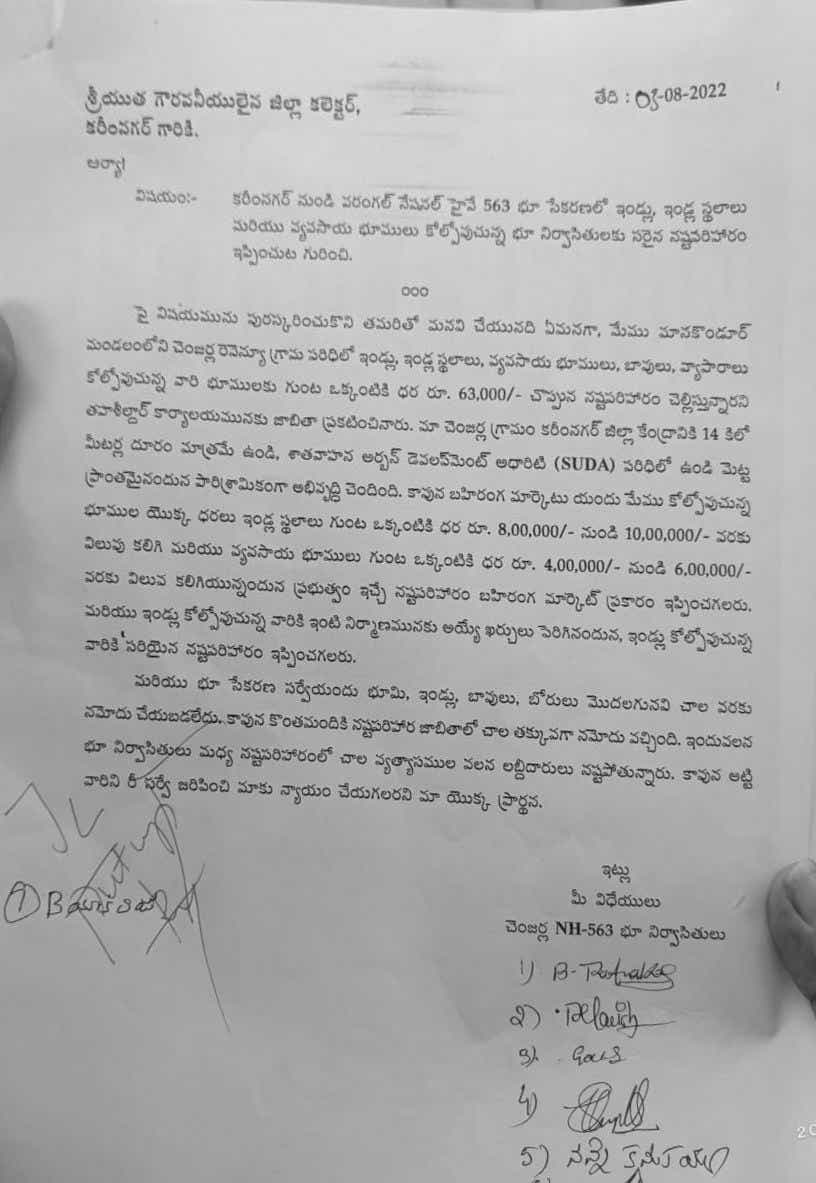 శ్రీయుత గౌరవనీయులైన జిల్లా కలెక్టర్,
తేది : 03-08-2022
కరీంనగర్ గారికి.
ఆర్యా!
విషయం:- కరీంనగర్ నుండి వరంగల్ నేషనల్ హైవే 563 భూ సేకరణలో ఇండ్లు, ఇండ్ల స్థలాలు
మరియు వ్యవసాయ భూములు కోల్పోవుచున్న భూ నిర్వాసితులకు సరైన నష్టపరిహారం
ఇప్పించుట గురించి.
ooo
పై విషయమును పురస్కరించుకొని తమరితో మనవి చేయునది ఏమనగా, మేము మానకొండూర్
మండలంలోని చెంజర్ల రెవెన్యూ గ్రామ పరిధిలో ఇండ్లు, ఇండ్ల స్థలాలు, వ్యవసాయ భూములు, బావులు, వ్యాపారాలు
కోల్పోవుచున్న వారి భూములకు గుంట ఒక్కంటికి ధర రూ. 63,000/- చొప్పున నష్టపరిహారం చెల్లిస్తున్నారని
తహశీల్దార్ కార్యాలయమునకు జాబితా ప్రకటించినారు. మా చెంజర్ల గ్రామం కరీంనగర్ జిల్లా కేంద్రానికి 14 కిలో
మీటర్ల దూరం మాత్రమే ఉండి, శాతవాహన అర్బన్ డెవలప్‌మెంట్ అథారిటి (SUDA) పరిధిలో ఉండి మెట్ట
ప్రాంతమైనందున పారిశ్రామికంగా అభివృద్ధి చెందింది. కావున బహిరంగ మార్కెటు యందు మేము కోల్పోవుచున్న
భూముల యొక్క ధరలు ఇండ్ల స్థలాలు గుంట ఒక్కంటికి ధర రూ. 8,00,000/- నుండి 10,00,000/- వరకు
విలువు కలిగి మరియు వ్యవసాయ భూములు గుంట ఒక్కంటికి ధర రూ. 4,00,000/- నుండి 6,00,000/-
వరకు విలువ కలిగియున్నందున ప్రభుత్వం ఇచ్చే నష్టపరిహారం బహిరంగ మార్కెట్ ప్రకారం ఇప్పించగలరు.
మరియు ఇండ్లు కోల్పోవుచున్న వారికి ఇంటి నిర్మాణమునకు అయ్యే ఖర్చులు పెరిగినందున, ఇండ్లు కోల్పోవుచున్న
వారికి సరియైన నష్టపరిహారం ఇప్పించగలరు.
మరియు భూ సేకరణ సర్వేయందు భూమి, ఇండ్లు, బావులు, బోరులు మొదలగునవి చాల వరకు
నమోదు చేయబడలేదు. కావున కొంతమందికి నష్టపరిహార జాబితాలో చాల తక్కువగా నమోదు వచ్చింది. ఇందువలన
భూ నిర్వాసితులు మధ్య నష్టపరిహారంలో చాల వ్యత్యాసముల వలన లబ్దిదారులు నష్టపోతున్నారు. కావున అట్టి
వారిని రీ సర్వే జరిపించి మాకు న్యాయం చేయగలరని మా యొక్క ప్రార్థన.
ఇట్లు
మీ విధేయులు
చెంజర్ల NH-563 భూ నిర్వాసితులు
① B
1) B-
2)
3)
4)
5)